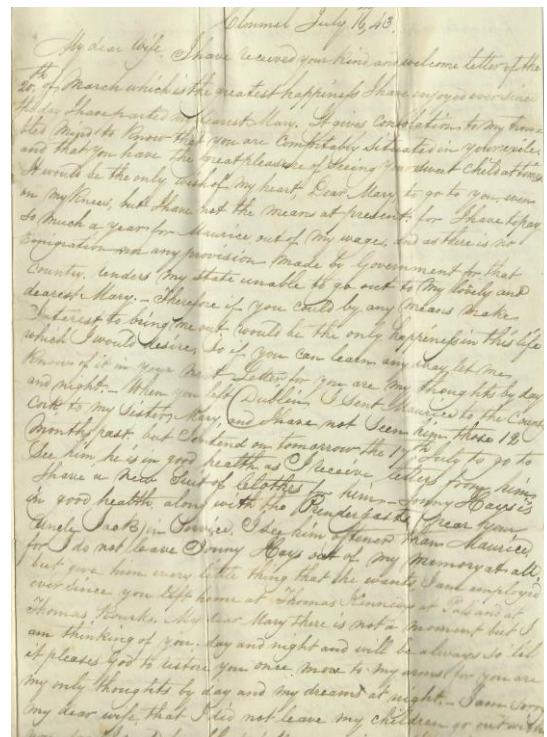 Clonmel July 16, 43.
My dear Wife. I have received your kind and welcome letter of the
20th of March which is the greatest happiness I have enjoyed ever since
the day I have parted my dearest Mary. It gives consolation to my trou
bled mind to know that you are comfortably situated in your exile
and that you have the great pleasure of seeing your sweet child at times
It would be the only wish of my heart, Dear Mary to go to you, even
on my knees, but I have not the means at present, for I have to pay
so much a year for Maurice out of my wages, and as there is no
Emigration nor any provision made by Government for that
Country, renders my state unable to go out to my lovely and
dearest Mary. - Therefore if you could by any means make
Interest to bring me out would be the only happiness in this life
which I would desire, So if you can learn any way, let me
know of it in your next letter for you are my thoughts by day
and night. - When you left Dublin, I sent Maurice to the County
Cork to my Sister Mary, and I have not seen him those 18
months past. but I intend on tomorrow the 17th July to go to
See him he is in good health as I receive letters from him
I have a new Suit of Clothes for him - Jonny Hays is
in good health along with the Prendergasts near your
Uncle Jack in Service. I see him oftener than Maurice,
for I do not leave Jonny Hays out of my memory at all,
but give him every little thing that he wants I am employed
ever since you left home at Thomas Kennedy at and at
Thomas Rourks. My dear Mary there is not a moment but I
am thinking of you day and night and will be always so 'til
it pleases God to restore you once more to my arms for you are
my only thoughts by day and my dreams at night. - I am sorry
my dear wife, that I did not leave my children go out with